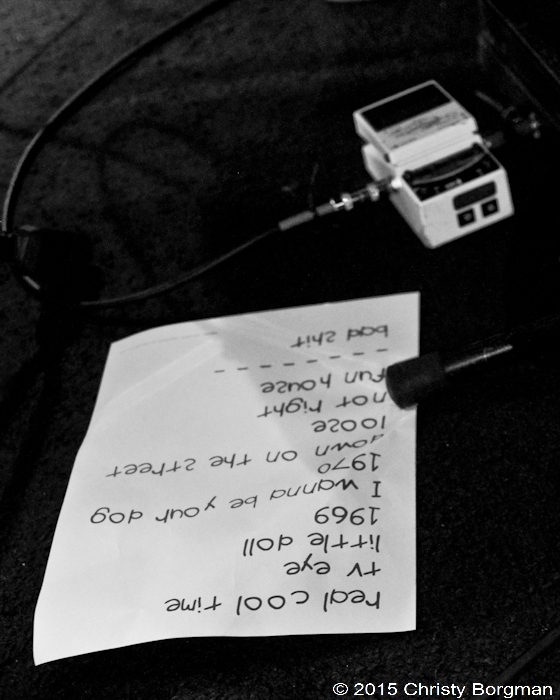 real cool time
tv eye
little doll
1969
I wanna be your dog
1970
down on the street
loose
not right
fun house
- - - - - - - -
bad shit
© 2015 Christy Borgman